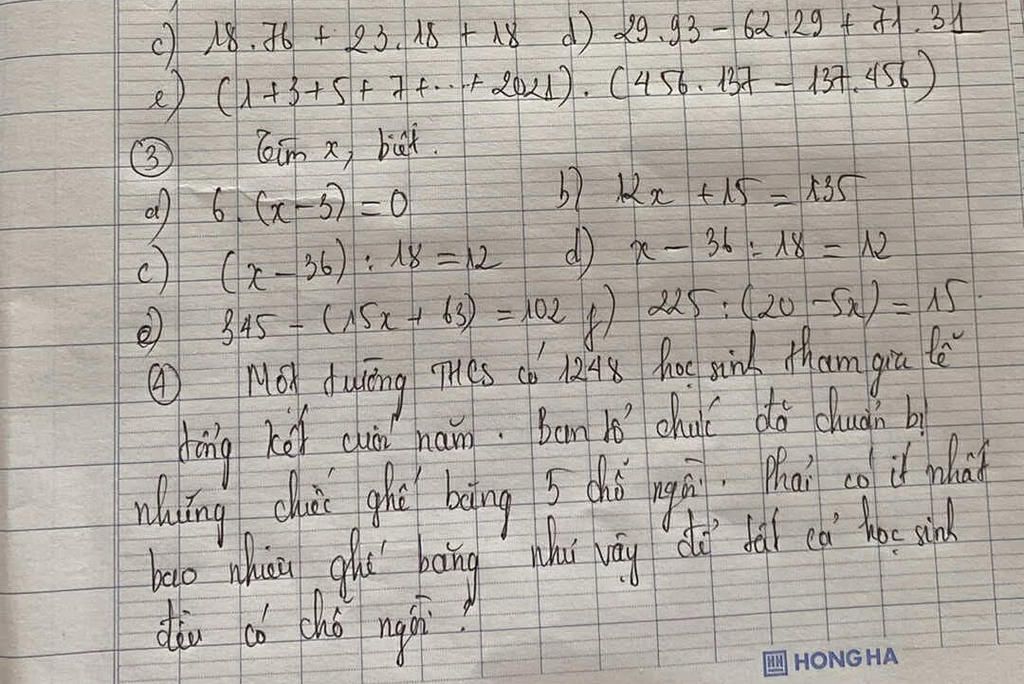 c) 18.76 + 23.18 + 18 d) 29.93 - 62.29 + 71.31
e) (1+3+5+7+...+2021).(456.137 - 137.456)
③ Tìm x, biết.
a) 6.(x-3) = 0 b) 12x + 15 = 135
c) (x - 36) : 18 = 12 d) x - 36 : 18 = 12
e) 345 - (15x + 63) = 102 f) 225 : (20 - 5x) = 15.
④ Một trường THCS có 1248 học sinh tham gia lễ
tổng kết cuối năm. Ban tổ chức đã chuẩn bị
những chiếc ghế băng 5 chỗ ngồi. Phải có ít nhất
bao nhiêu ghế băng như vậy để tất cả học sinh
đều có chỗ ngồi?
HH HONG HA